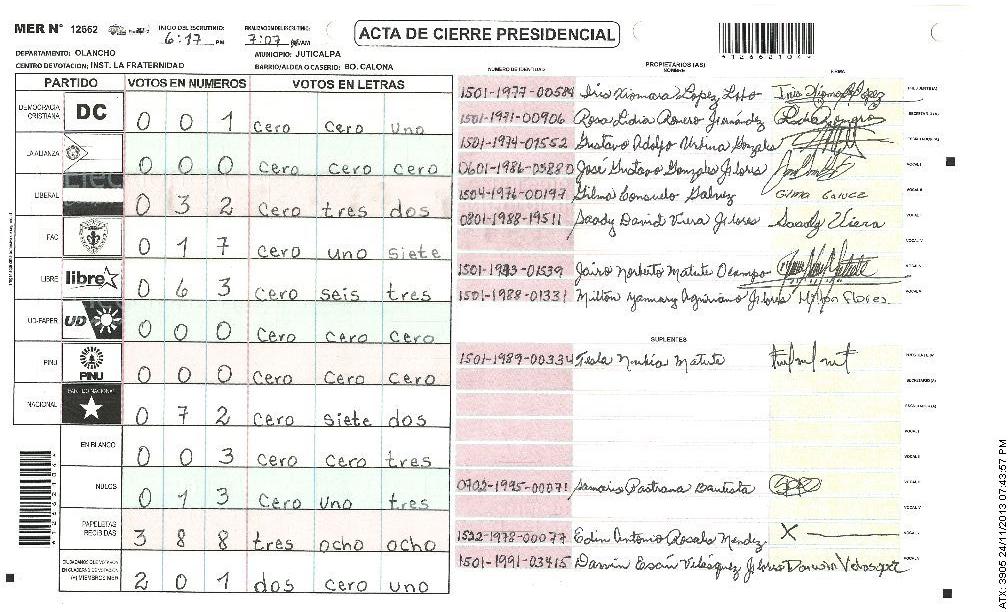 MER N° 12562
INICIO DEL ESCRUTINIO: 6:17 PM
FINALIZACION DEL ESCRUTINIO: 7:07
ACTA DE CIERRE PRESIDENCIAL
DEPARTAMENTO: OLANCHO
MUNICIPIO: JUTICALPA
CENTRO DE VOTACION: INST. LA FRATERNIDAD
BARRIO/ALDEA O CASERIO: BO. CALONA
PARTIDO VOTOS EN NUMEROS VOTOS EN LETRAS
DEMOCRACIA CRISTIANA DC 0 0 1 cero cero uno
LA ALIANZA 0 0 0 cero cero cero
LIBERAL 0 3 2 cero tres dos
PAC 0 1 7 cero uno siete
LIBRE libre 0 6 3 cero seis tres
UD-FAPER UD 0 0 0 cero cero cero
PINU PINU 0 0 0 cero cero cero
NACIONAL PARTIDO NACIONAL 0 7 2 cero siete dos
EN BLANCO 0 0 3 cero cero tres
NULOS 0 1 3 cero uno tres
PAPELETAS RECIBIDAS 3 8 8 tres ocho ocho
(+) MIEMBROS MER 2 0 1 dos cero uno
NUMERO DE IDENTIDAD PROPIETARIOS (AS) NOMBRE FIRMA
1501-1977-00584 Iris Xiomara Lopez
1501-1971-00906 Rosa Lidia Romero Hernández
1501-1974-01552 Gustavo Adolfo Urbina Gonzales
0601-1986-03880 José Gustavo Gonzales Flores
1504-1976-00197 Gilma Consuelo Galvez
0801-1988-19511 Saady David Viera Flores Saady Viera
1501-1983-01539 Jairo Norberto Matute Ocampo
1501-1988-01331 Milton Flores Milton Flores
SUPLENTES
1501-1989-00334 Tesla Matute
0702-1995-00071 Samaris Pastrana Bautista
1522-1978-00077 Edin Antonio Rosales Mendez X
1501-1991-03415 Darwin Esaú Velásquez Flores Darwin Velasquez
ATX: 3905 24/11/2013 07:43:57 PM